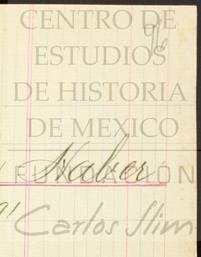 CENTRO DE
ESTUDIOS
DE HISTORIA
DE MEXICO
Haber
FUNDACIÓN
Carlos Slim